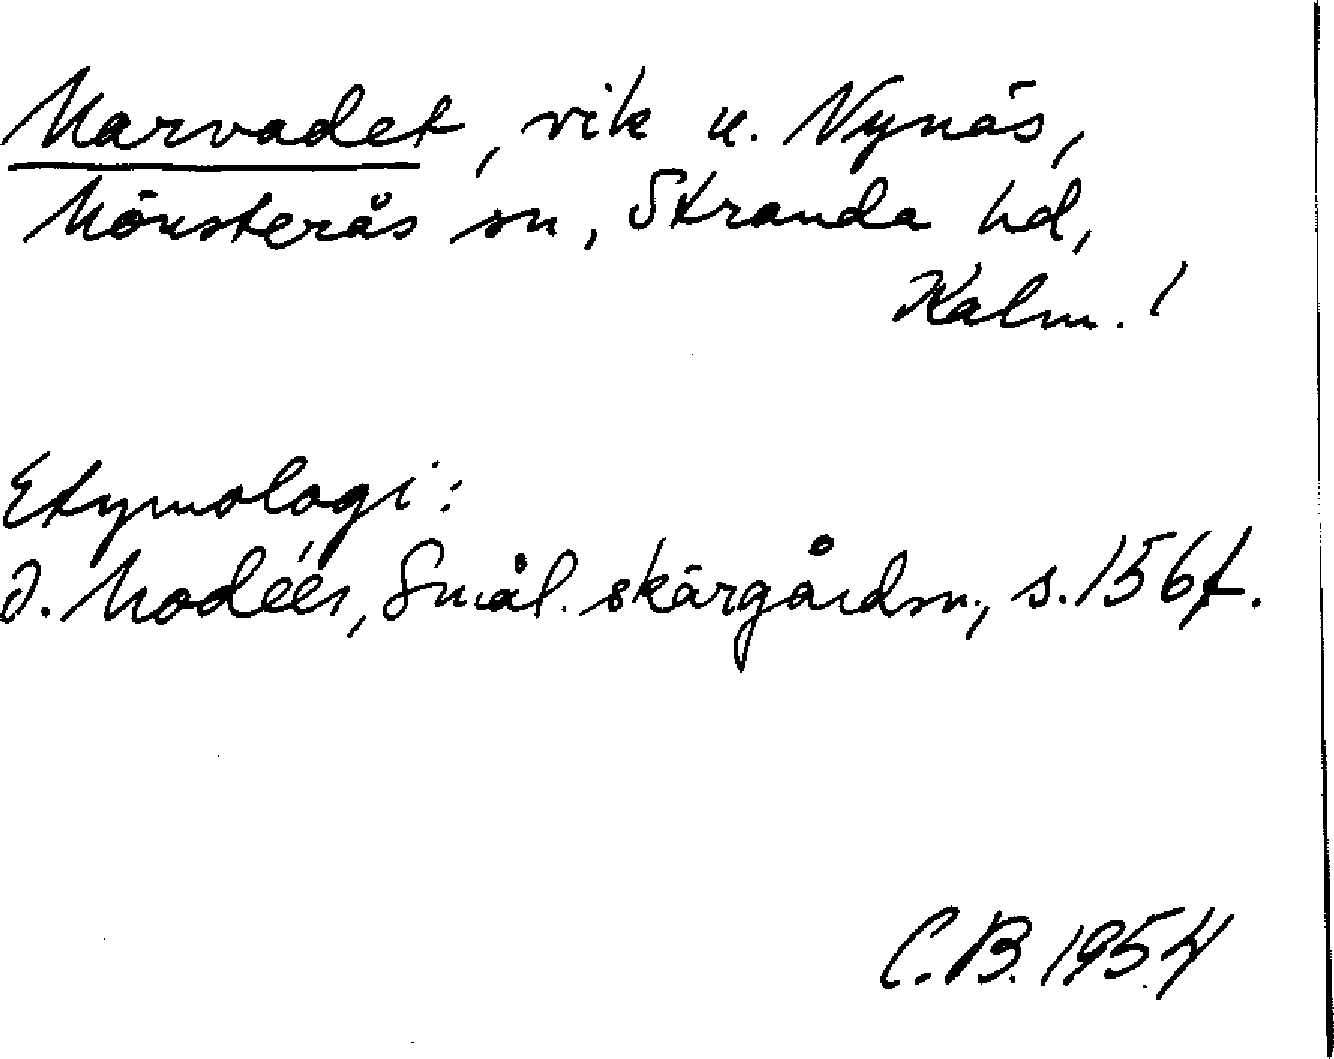 Marvadet, vik u. Nynäs,
Mönsterås sn, Stranda hd,
Kalm. l
Etymologi:
I. Modéer, Smål. skärgårdsn., s. 156 f.
C. B. 1954